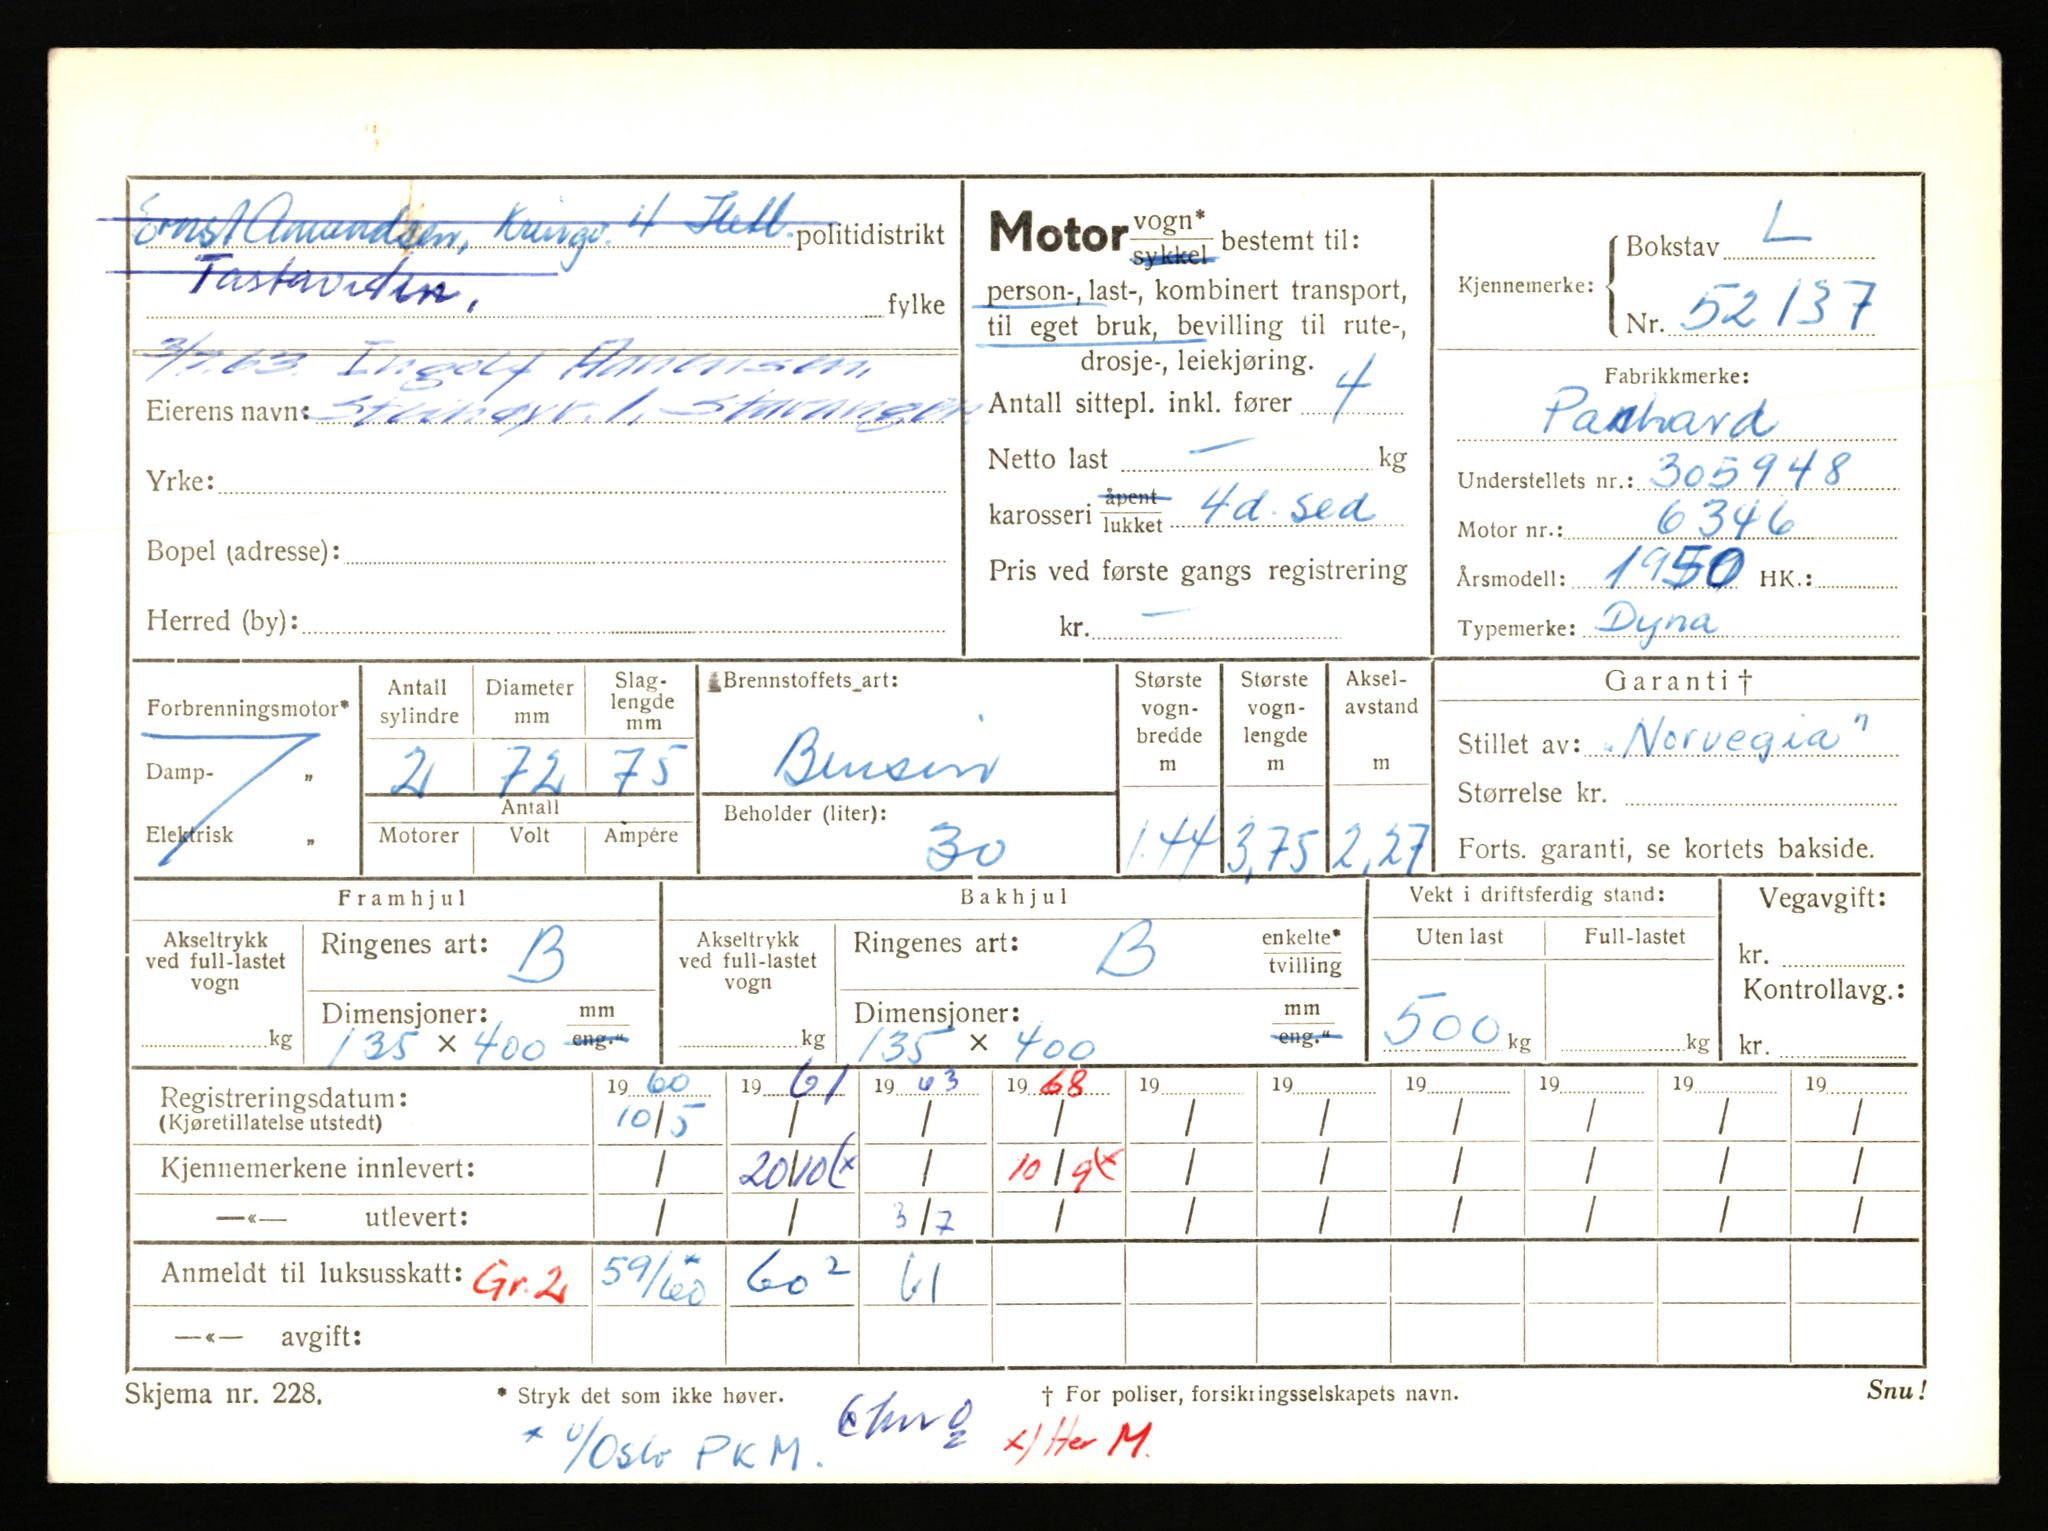 Ernst Amundsen, Kringv. 4 politidistrikt
Tastaveden, fylke
3/7.63. Ingolf
Eierens navn: 1, Stavanger
Yrke:
Bopel (adresse):
Herred (by):
Motor vogn* sykkel bestemt til:
person-, last-, kombinert transport,
til eget bruk, bevilling til rute-,
drosje-, leiekjøring.
Antall sittepl. inkl. fører 4
Netto last — kg
karosseri åpent lukket 4d. sed
Pris ved første gangs registrering
kr. —
Kjennemerke: Bokstav L
Nr. 52137
Fabrikkmerke:
Panhard
Understellets nr.: 305948
Motor nr.: 6346
Årsmodell: 1950 HK.:
Typemerke: Dyna
Forbrenningsmotor*
Damp- "
Elektrisk "
Antall sylindre Diameter mm Slaglengde mm
2 72 75
Antall
Motorer Volt Ampére
Brennstoffets art:
Bensin
Beholder (liter):
30
Største vognbredde m Største vognlengde m Akselavstand m
1.44 3,75 2,27
Garanti †
Stillet av: "Norvegia"
Størrelse kr.
Forts. garanti, se kortets bakside.
Framhjul
Akseltrykk ved full-lastet vogn kg
Ringenes art: B
Dimensjoner: mm
135 × 400 eng."
Bakhjul
Akseltrykk ved full-lastet vogn kg
Ringenes art: B enkelte* tvilling
Dimensjoner: mm
135 × 400 eng."
Vekt i driftsferdig stand:
Uten last Full-lastet
500 kg kg
Vegavgift:
kr.
Kontrollavg.:
kr.
Registreringsdatum: 19 60 19 61 19 63 19 68 19 19 19 19 19 19
(Kjøretillatelse utstedt) 10/5 / / / / / / / / /
Kjennemerkene innlevert: / 20/10 (x / 10/9 (x / / / / / /
—«— utlevert: / / 3/7 / / / / / / /
Anmeldt til luksusskatt: Gr. 2 59/60 * 60 2 61
—«— avgift:
Skjema nr. 228. * Stryk det som ikke høver. † For poliser, forsikringsselskapets navn. Snu!
* u/Oslo PKM. x) Her M.